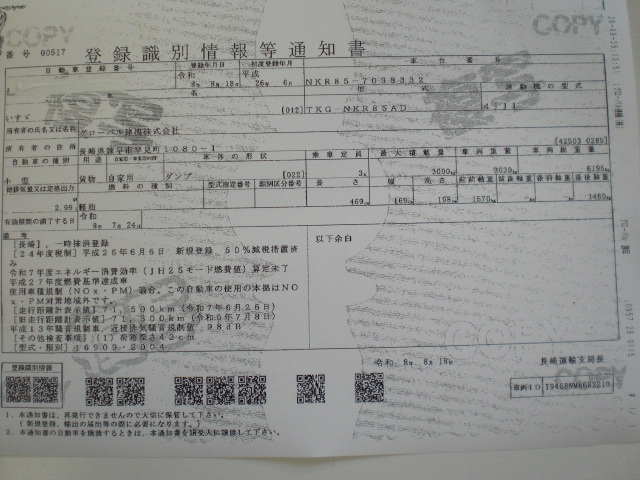 COPY
COPY
番号 00517
登録識別情報等通知書
自動車登録番号 登録年月日 初度登録年月 車台番号
令和 平成
8年 8月 18日 26年 6月 NKR85-7038332
車名 型式 原動機の型式
いすゞ [012] TKG-NKR85AD 4JJ1
所有者の氏名又は名称 グローバル建機株式会社
所有者の住所 長崎県諫早市早見町1080-1 [42503 0285]
自動車の種別 用途 自家用・事業用の別 車体の形状 乗車定員 最大積載量 車両重量 車両総重量
小型 貨物 自家用 ダンプ [022] 3人 3000kg 3030kg 6195kg
総排気量又は定格出力 燃料の種別 型式指定番号 類別区分番号 長さ 幅 高さ 前前軸重 前後軸重 後前軸重 後後軸重
2.99 軽油 469cm 169cm 198cm 1570kg 1460kg
有効期間の満了する日 令和
8年 7月 24日
備考
[長崎],一時抹消登録
[24年度税制]平成26年6月6日 新規登録 50%減税措置済
み
令和7年度エネルギー消費効率(JH25モード燃費値)算定未了
平成27年度燃費基準達成車
使用車種規制(NOx・PM)適合。この自動車の使用の本拠はNO
x・PM対策地域外です。
[走行距離計表示値]71,500km(令和7年6月26日)
[旧走行距離計表示値]71,300km(令和6年7月8日)
平成13年騒音規制車,近接排気騒音規制値 98dB
[その他検査事項](1)荷箱深さ43cm
[型式・類別]16909-2004
以下余白
令和 8年 8月 18日 長崎運輸支局長
登録識別情報
車両ID
1.本通知書は、再発行できませんので大切に保管して下さい。
(新規登録、輸出の届出等の際に必要になります。)
2.本通知書の自動車を譲渡するときは、本通知書を譲受人に譲渡して下さい。
COPY
COPY